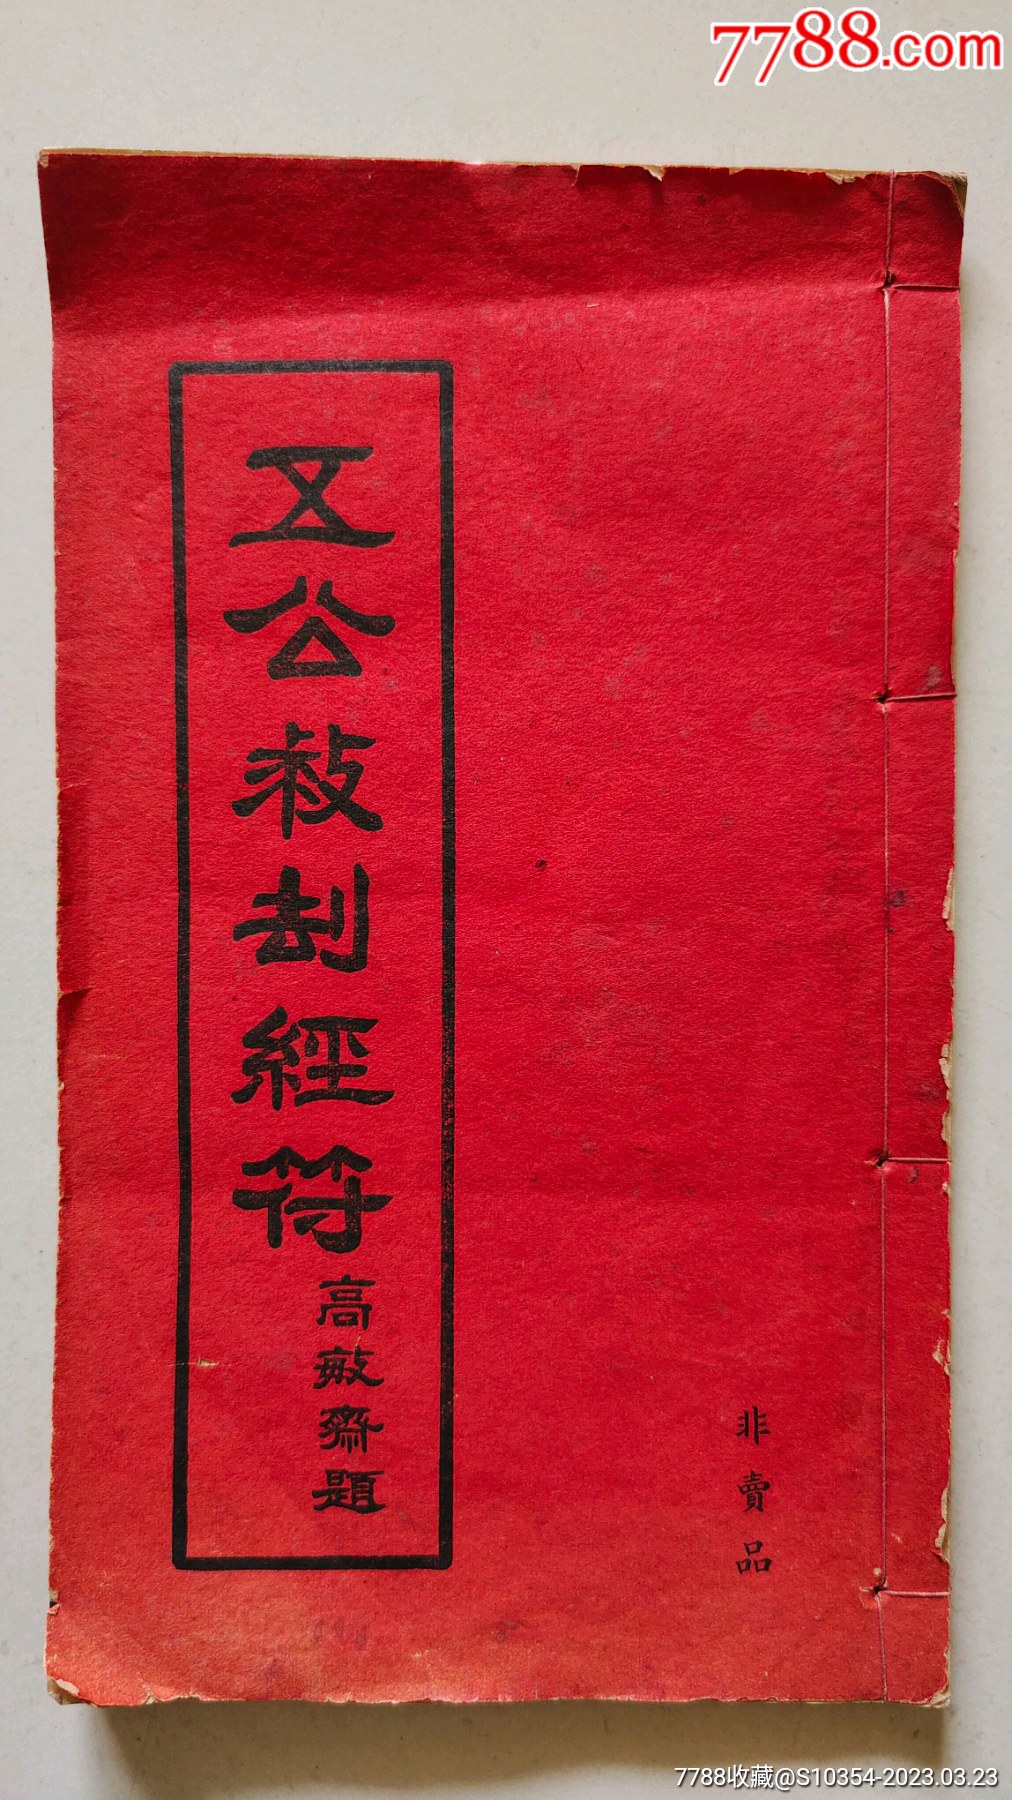 7788.com
五公救刦經符
高敏齋題
非賣品
7788收藏@S10354-2023.03.23